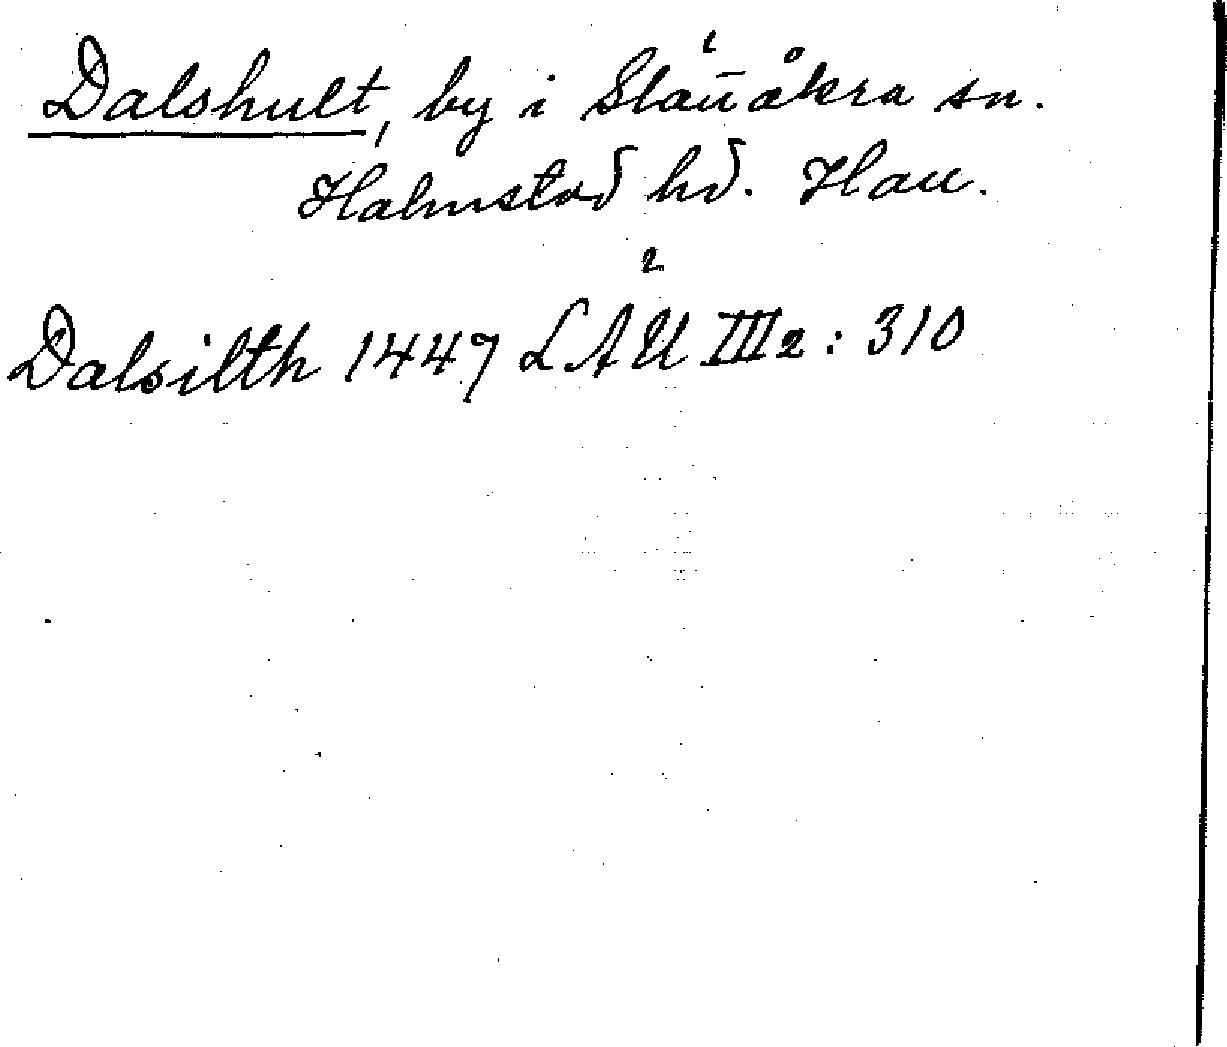 Dalshult, by i Slättåkra sn.
Halmstad hd. Hall.
Dalsilth 1447 LAU III2: 310